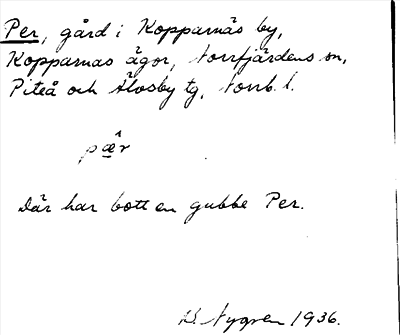 Per, gård i Kopparnäs by,
Kopparnäs ägor, Norrfjärdens sn,
Piteå och Älvsby tg, Norrb. l.
pæ̂r
Där har bott en gubbe Per.
B. Nygren 1936.